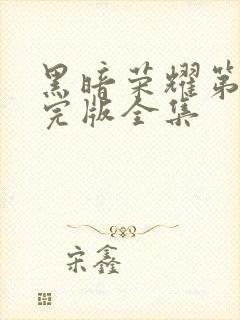 黑暗荣耀第
完版全集
宋鑫